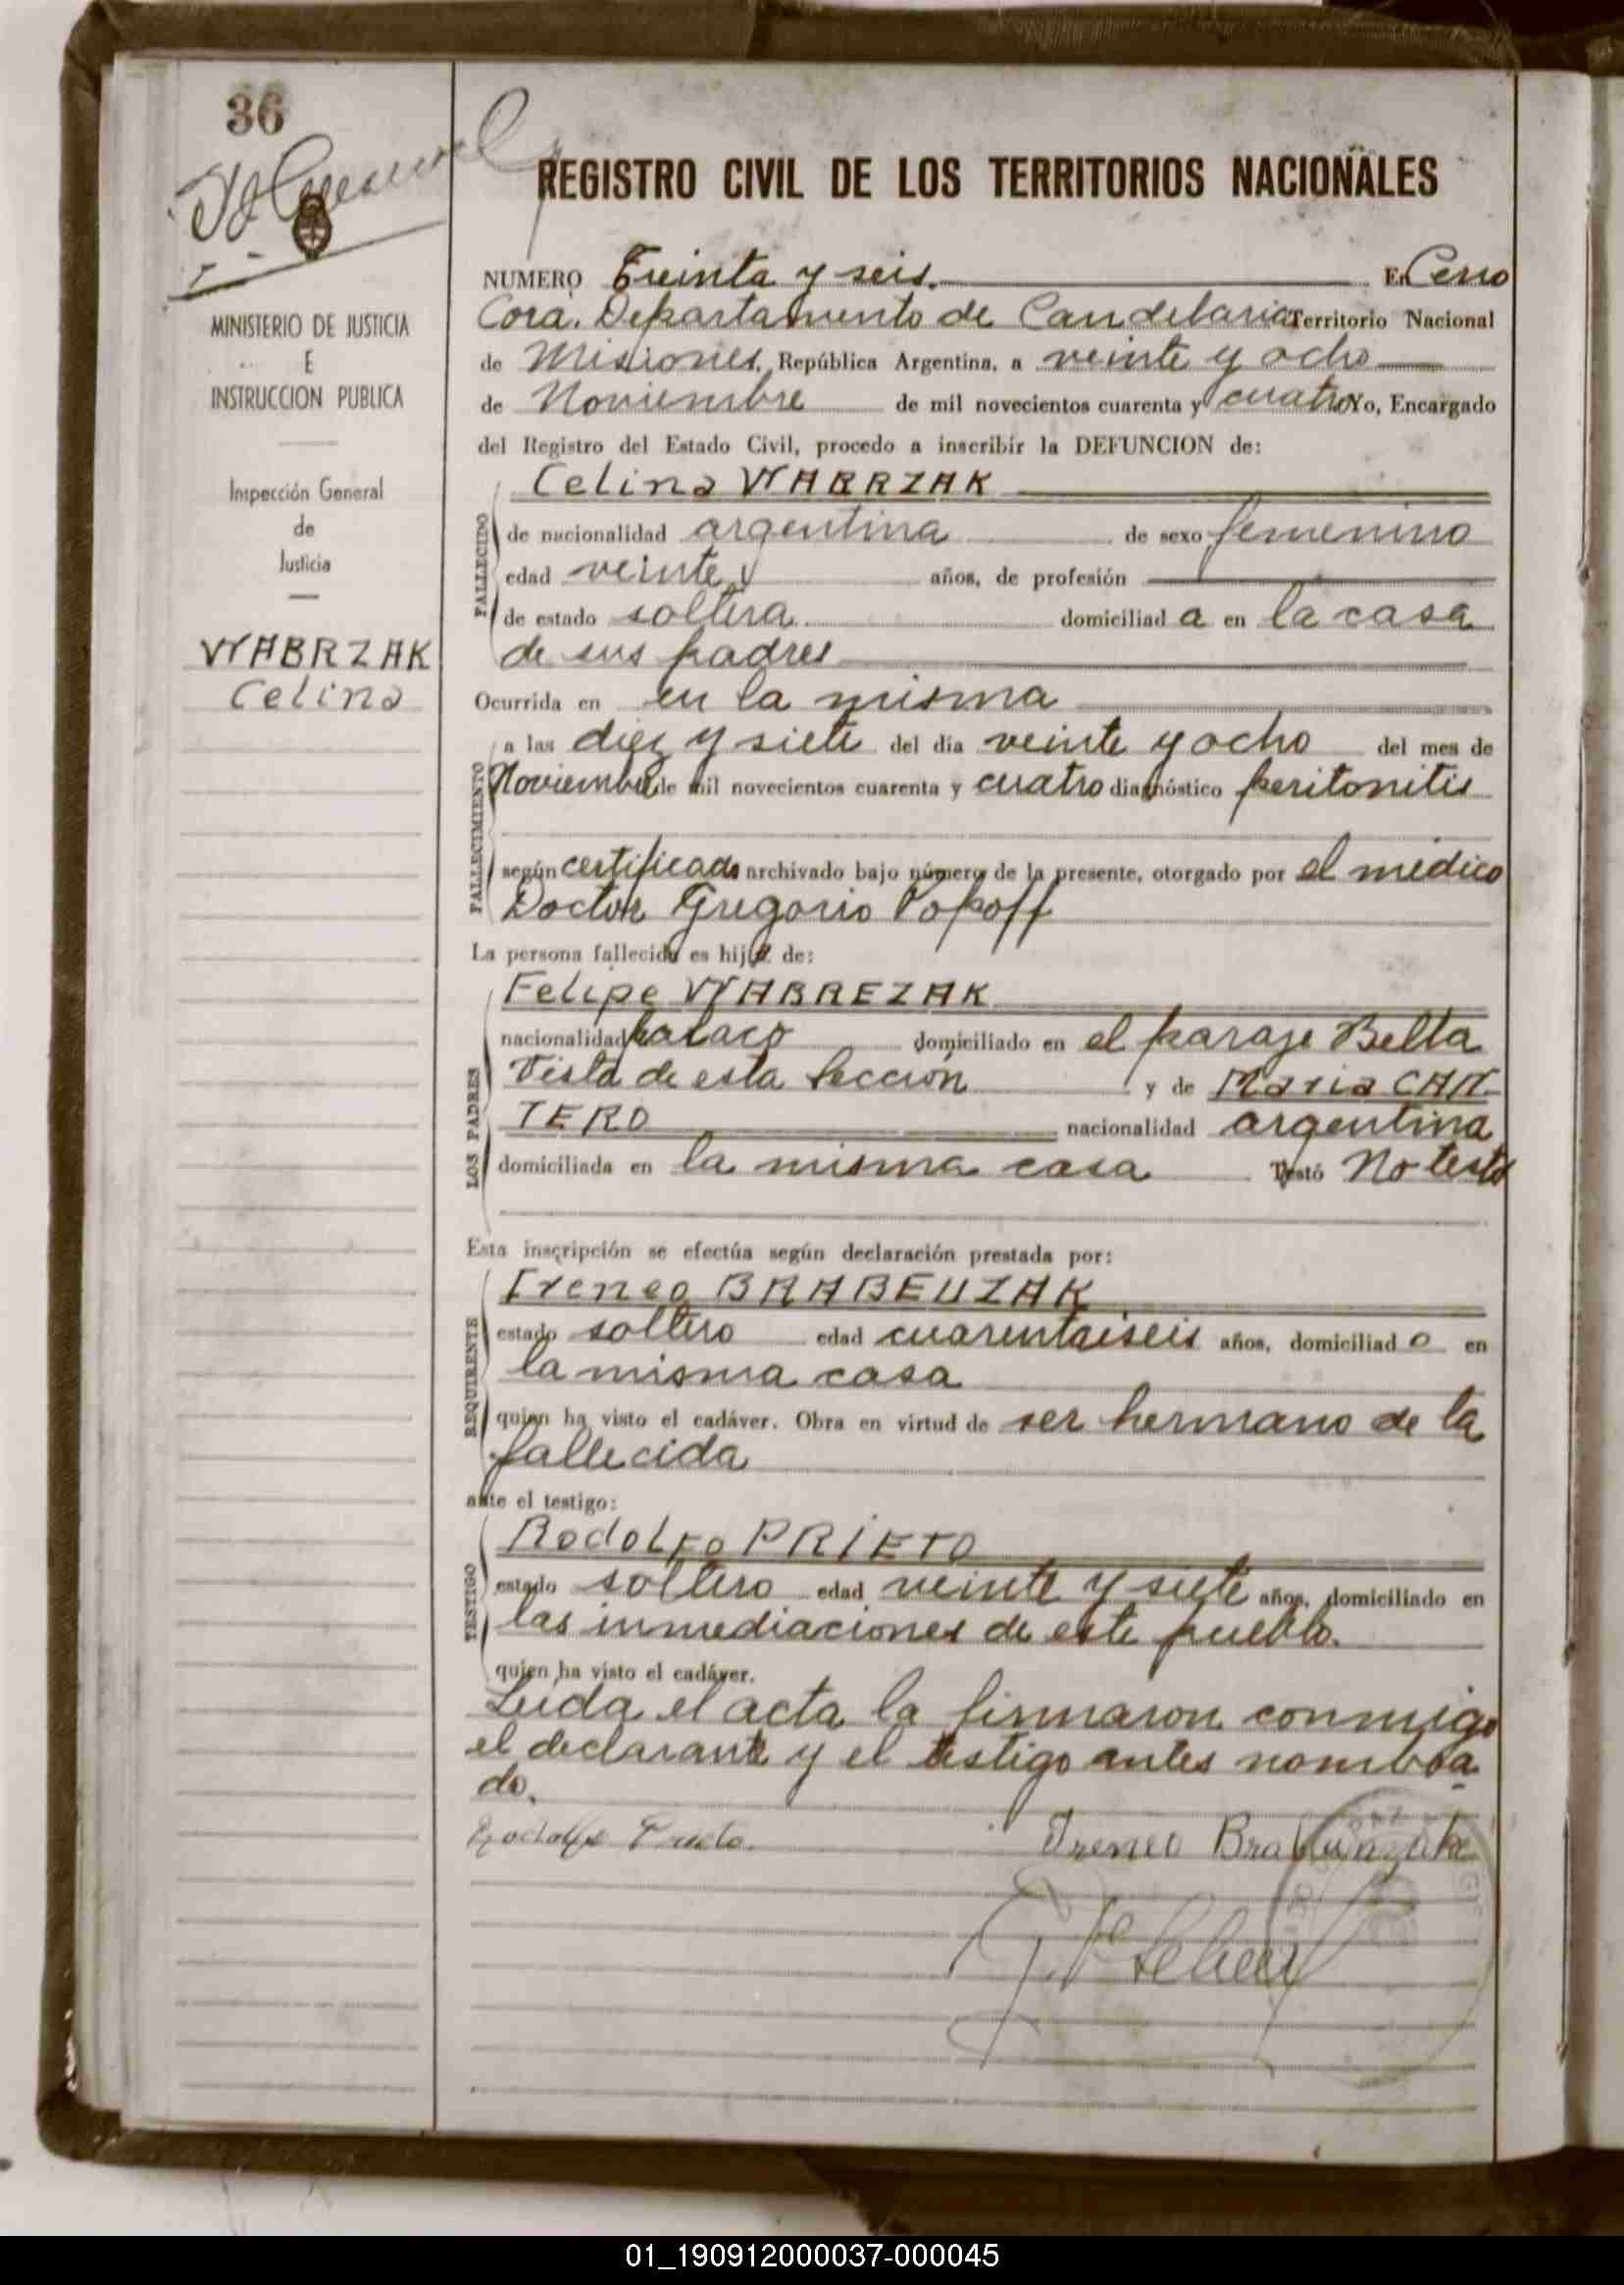 36
REGISTRO CIVIL DE LOS TERRITORIOS NACIONALES
MINISTERIO DE JUSTICIA
E
INSTRUCCION PUBLICA
Inspección General
de
Justicia
WABRZAK
Celina
NUMERO Treinta y seis. En Cerro
Cora. Departamento de Candelaria Territorio Nacional
de Misiones, República Argentina, a veinte y ocho
de Noviembre de mil novecientos cuarenta y cuatro Yo, Encargado
del Registro del Estado Civil, procedo a inscribir la DEFUNCION de:
FALLECIDO
Celina WABRZAK
de nacionalidad argentina de sexo femenino
edad veinte años, de profesión
de estado soltera domiciliad a en la casa
de sus padres
Ocurrida en en la misma
FALLECIMIENTO
a las diez y siete del día veinte y ocho del mes de
Noviembre de mil novecientos cuarenta y cuatro diagnóstico peritonitis
según certificado archivado bajo número de la presente, otorgado por el médico
Doctor Gregorio Popoff
La persona fallecida es hija de:
LOS PADRES
Felipe WABREZAK
nacionalidad polaco domiciliado en el paraje Bella
Vista de esta Sección y de Maria CAN
TERO nacionalidad argentina
domiciliada en la misma casa Testó No testó
Esta inscripción se efectúa según declaración prestada por:
REQUIRENTE
Ireneo BRABEUZAK
estado soltero edad cuarentaiseis años, domiciliad o en
la misma casa
quien ha visto el cadáver. Obra en virtud de ser hermano de la
fallecida
ante el testigo:
TESTIGO
Rodolfo PRIETO
estado soltero edad veinte y siete años, domiciliado en
las inmediaciones de este pueblo.
quien ha visto el cadáver.
Leida el acta la firmaron conmigo
el declarante y el testigo antes nombra
do.
Rodolfo Prieto. Ireneo
01_190912000037-000045